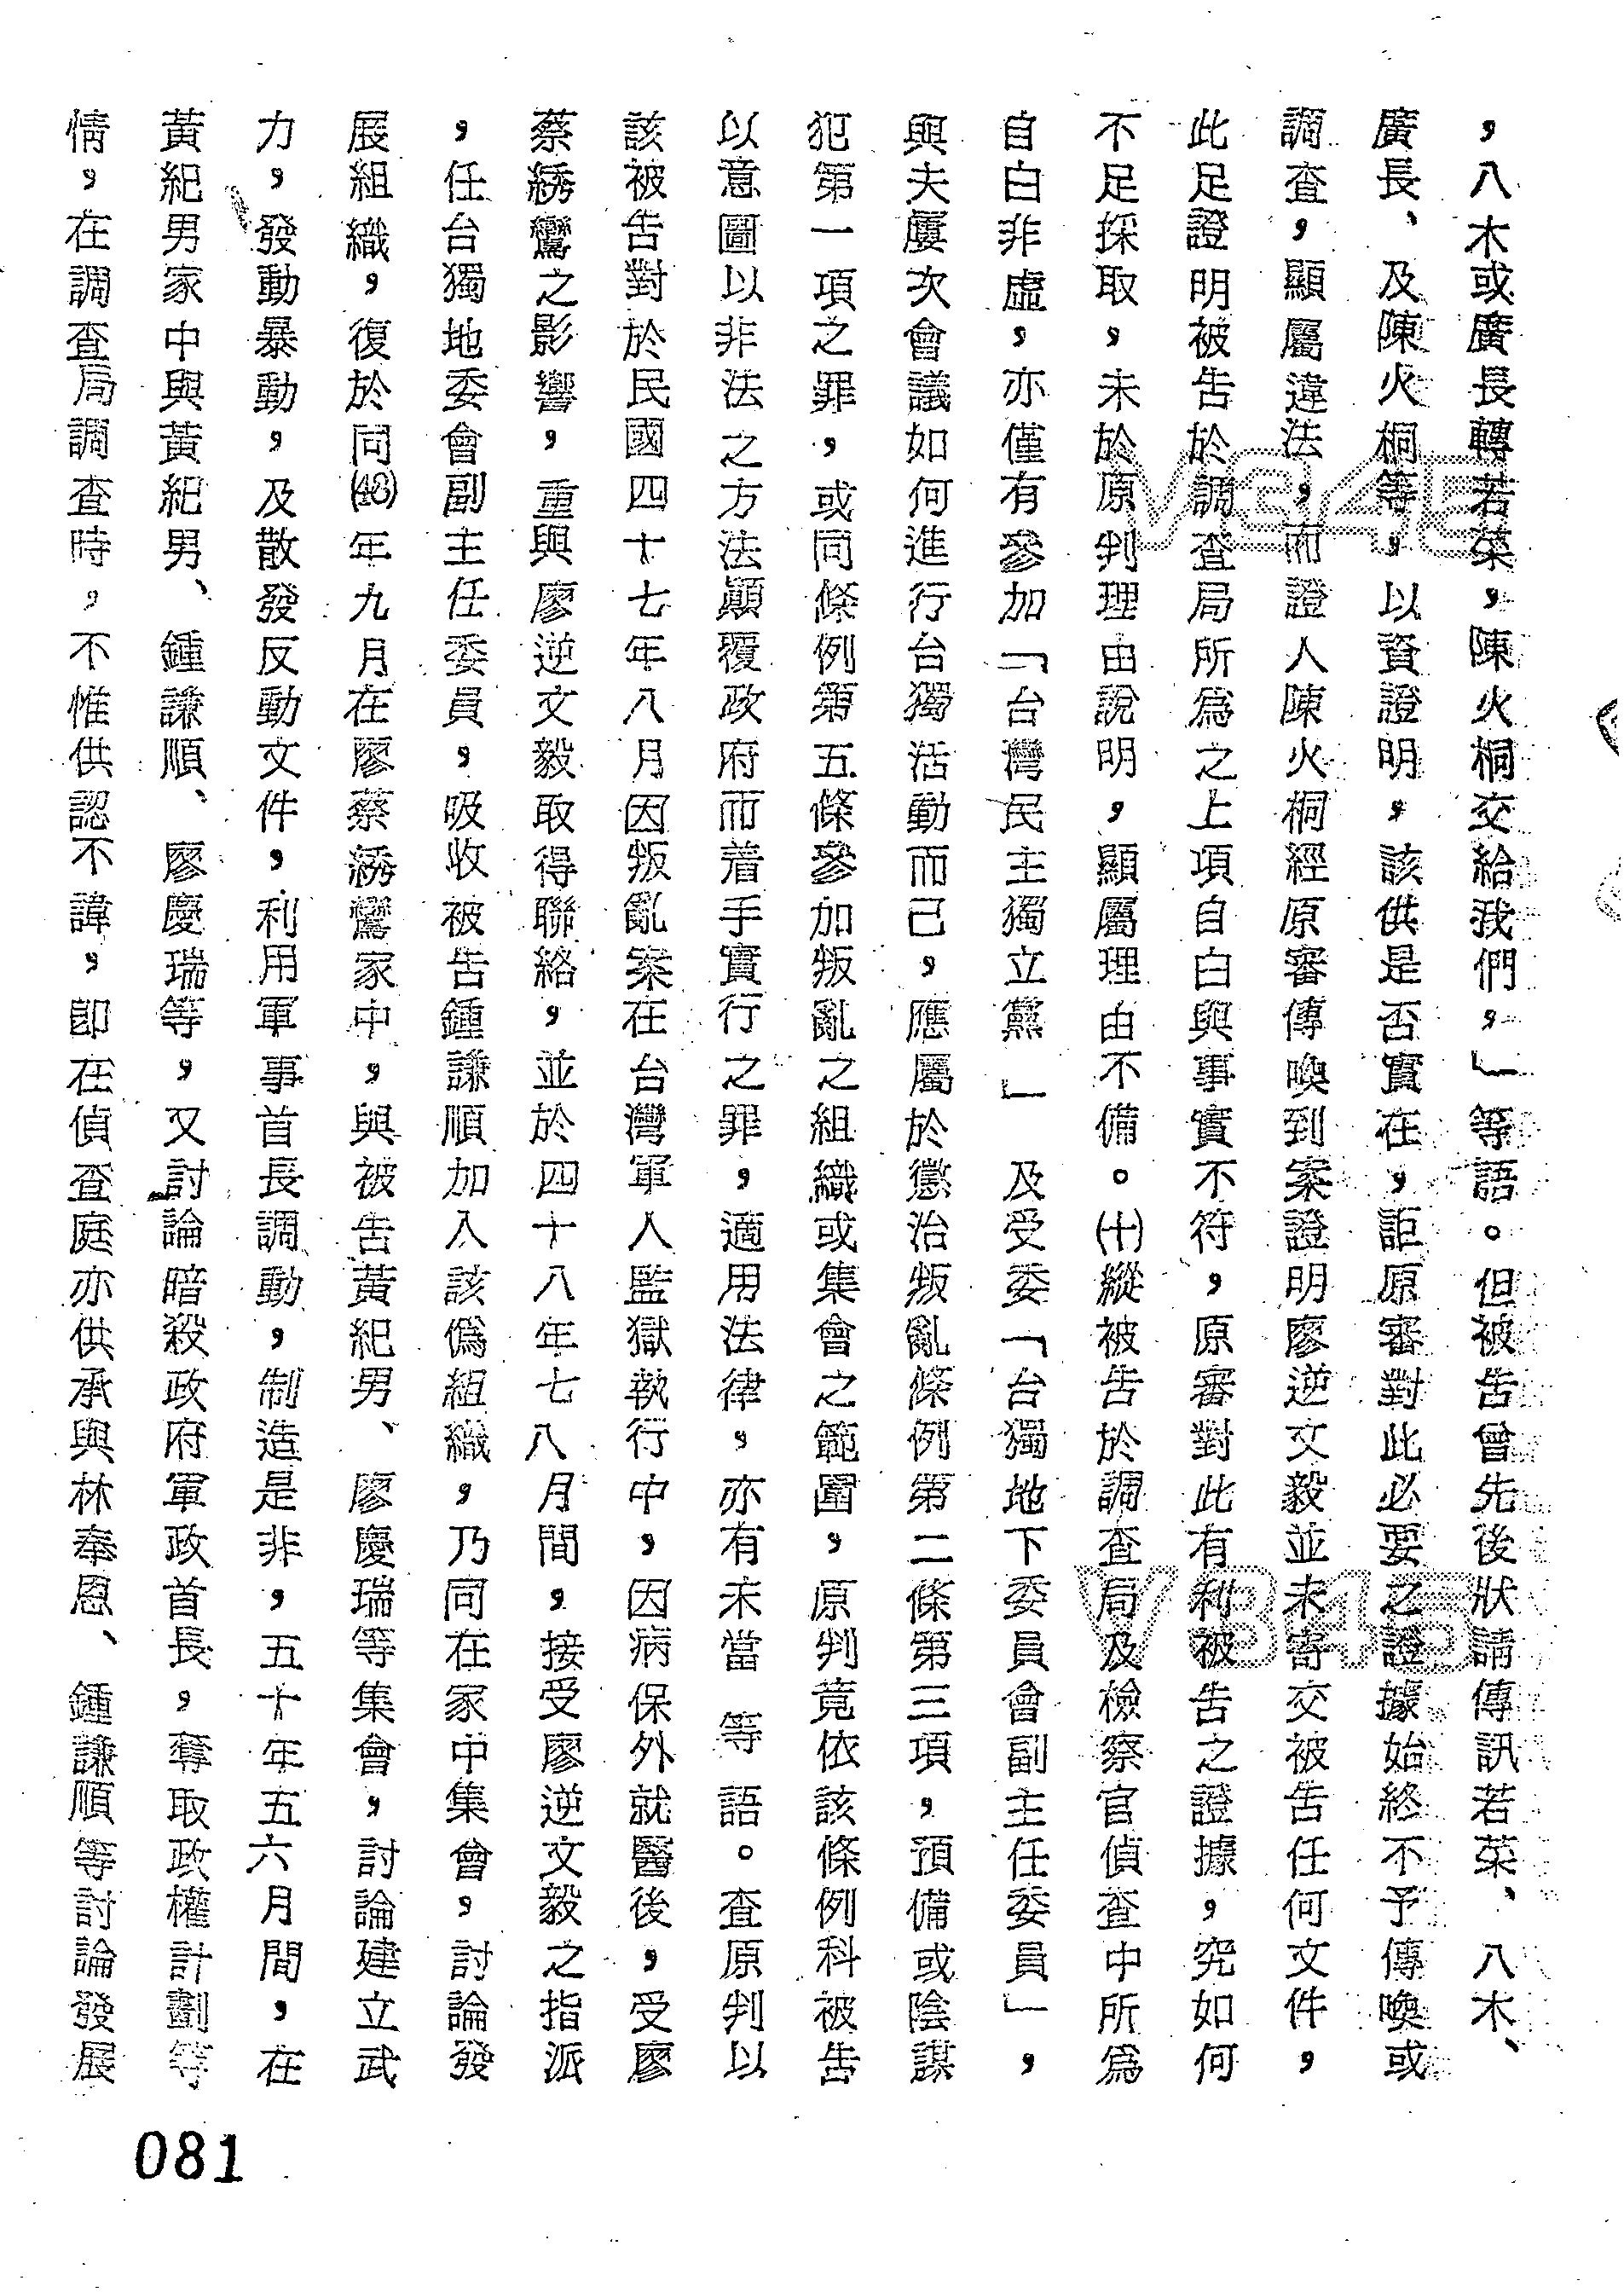 ，八木或廣長轉若菜，陳火桐交給我們，」等語。但被告曾先後狀請傳訊若菜、八木、
廣長、及陳火桐等，以資證明，該供是否實在，詎原審對此必要之證據始終不予傳喚或
調查，顯屬違法，而證人陳火桐經原審傳喚到案證明廖逆文毅並未寄交被告任何文件，
此足證明被告於調查局所為之上項自白與事實不符，原審對此有利被告之證據，究如何
不足採取，未於原判理由說明，顯屬理由不備。(十)縱被告於調查局及檢察官偵查中所為
自白非虛，亦僅有參加「台灣民主獨立黨」及受委「台獨地下委員會副主任委員」，
與夫屢次會議如何進行台獨活動而已，應屬於懲治叛亂條例第二條第三項，預備或陰謀
犯第一項之罪，或同條例第五條參加叛亂之組織或集會之範圍，原判竟依該條例科被告
以意圖以非法之方法顛覆政府而着手實行之罪，適用法律，亦有未當 等語。查原判以
該被告對於民國四十七年八月因叛亂案在台灣軍人監獄執行中，因病保外就醫後，受廖
蔡綉鸞之影響，重與廖逆文毅取得聯絡，並於四十八年七八月間，接受廖逆文毅之指派
，任台獨地委會副主任委員，吸收被告鍾謙順加入該偽組織，乃同在家中集會，討論發
展組織，復於同(48)年九月在廖蔡綉鸞家中，與被告黃紀男、廖慶瑞等集會，討論建立武
力，發動暴動，及散發反動文件，利用軍事首長調動，制造是非，五十年五六月間，在
黃紀男家中與黃紀男、鍾謙順、廖慶瑞等，又討論暗殺政府軍政首長，奪取政權計劃等
情，在調查局調查時，不惟供認不諱，即在偵查庭亦供承與林奉恩、鍾謙順等討論發展
081
V345
V345